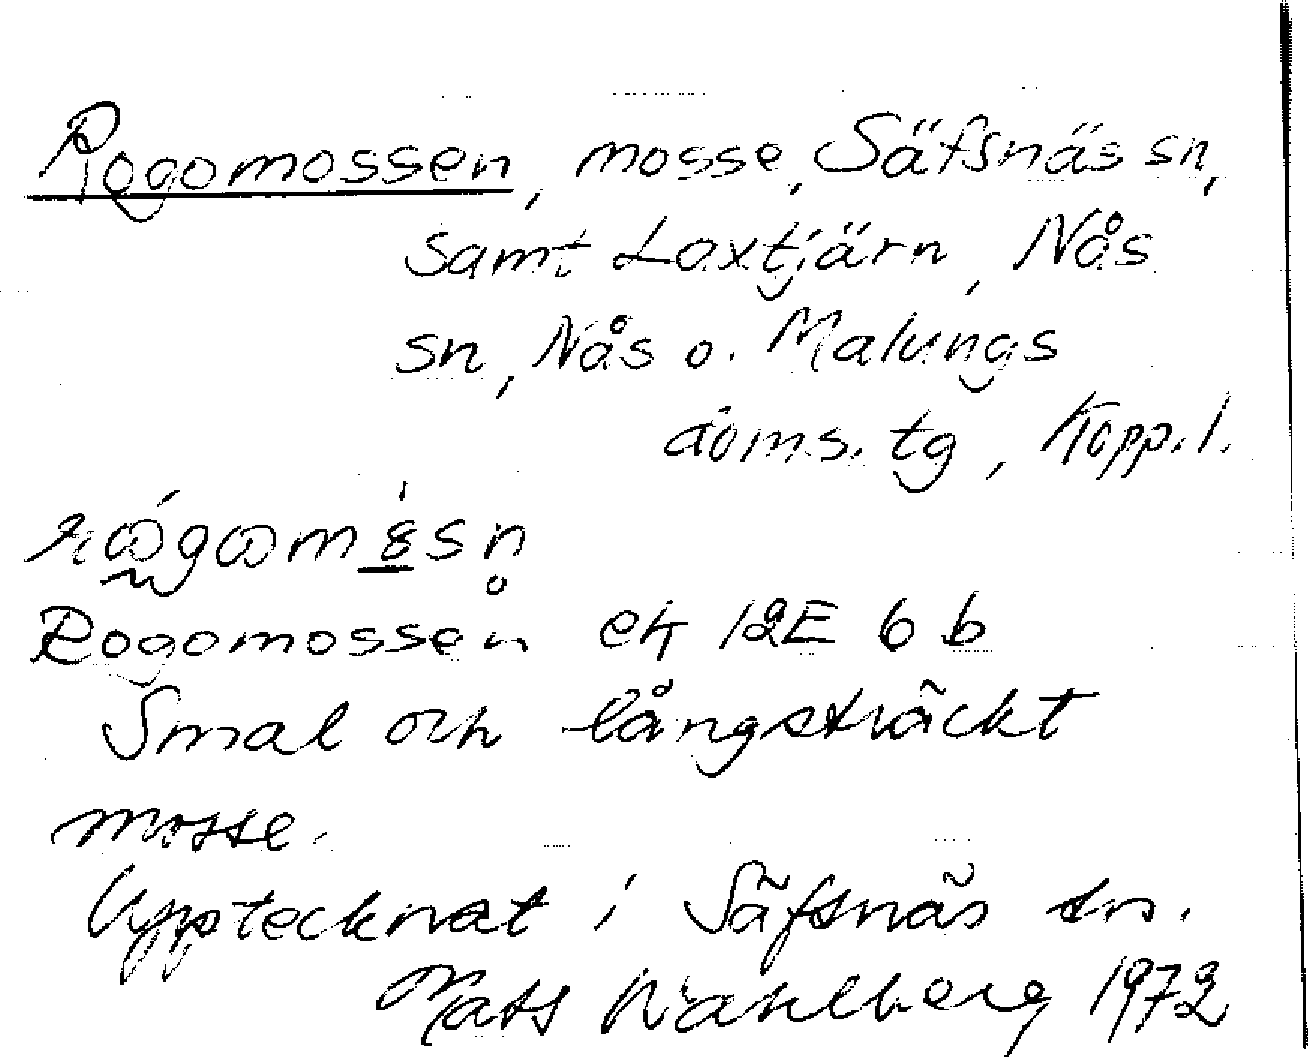 Rogomossen, mosse, Säfsnäs sn,
samt Loxtjärn, Nås
sn, Nås o. Malungs
doms. tg, Kopp. l.
Rogomossen ek 12E 6 b
Smal och långsträckt
mosse.
Upptecknat i Säfsnäs sn.
Mats Wahlberg 1972